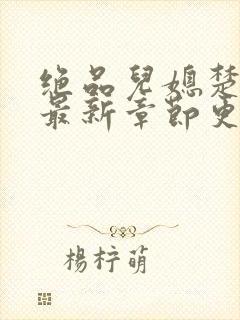 绝品儿媳楚
最新章节更
杨梓萌